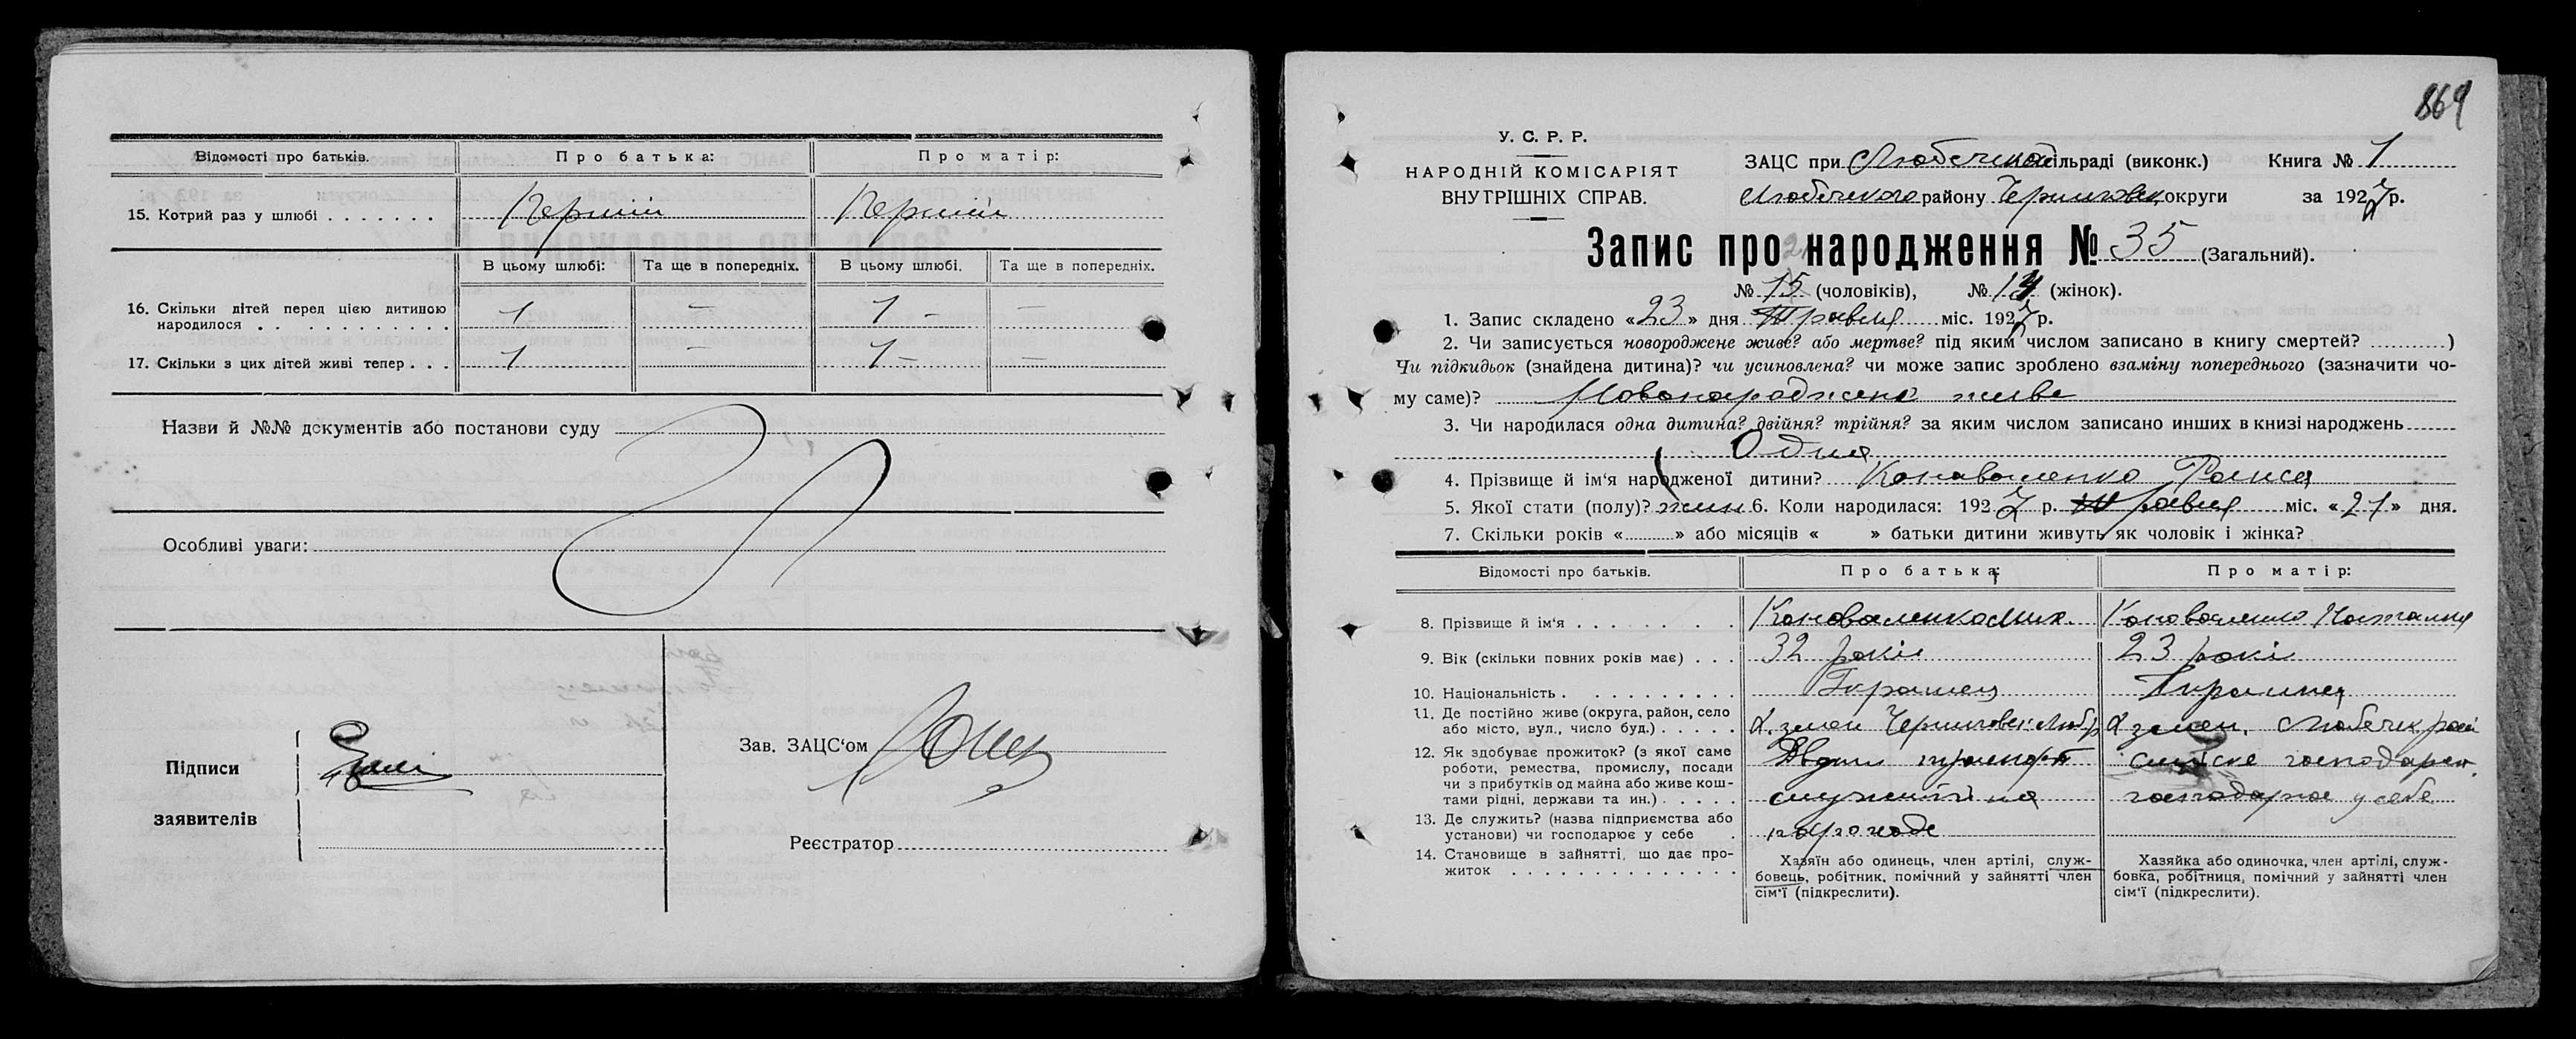 Відомості про батьків.
Про батька:
Про матір:
15. Котрий раз у шлюбі
Перший
Перший
В цьому шлюбі:
Та ще в попередніх.
В цьому шлюбі.
Та ще в попередніх.
16. Скільки дітей перед цією дитиною
народилося
1 — 1 — —
17. Скільки з цих дітей живі тепер
1 — 1 — —
Назви й №№ документів або постанови суду
Особливі уваги:
Підписи
заявителів
Зав. ЗАЦС'ом
Реєстратор
869
У. С. Р. Р.
НАРОДНІЙ КОМІСАРІЯТ
ВНУТРІШНІХ СПРАВ.
ЗАЦС при Любечской сільраді (виконк.) Книга № 1
Любечского району Черниговск. округи за 1927 р.
Запис про народження № 35 (Загальний).
№ 15 (чоловіків), № 14 (жінок).
1. Запис складено «23» дня Травня міс. 1927 р.
2. Чи записується новороджене живе? або мертве? під яким числом записано в книгу смертей? )
Чи підкидьок (знайдена дитина)? чи усиновлена? чи може запис зроблено взаміну попереднього (зазначити чо-
му саме)? Новонароджене живе
3. Чи народилася одна дитина? двійня? трійня? за яким числом записано инших в книзі народжень
Одна
4. Прізвище й ім'я народженої дитини? Коноваленко Раиса
5. Якої стати (полу)? жин 6. Коли народилася: 1927 р. Травня міс. «21» дня.
7. Скільки років « » або місяців « » батьки дитини живуть як чоловік і жінка?
Відомості про батьків.
Про батька:
Про матір:
8. Прізвище й ім'я
Коноваленко Мих.
Коноваленко Наталия
9. Вік (скільки повних років має)
32 роки
23 рокі
10. Національність
11. Де постійно живе (округа, район, село
або місто, вул., число буд.)
Черниговск. Люб
Любечск. рай
12. Як здобуває прожиток? (з якої саме
роботи, ремества, промислу, посади
чи з прибутків од майна або живе кош-
тами рідні, держави та ин.)
транспорт
господарст.
13. Де служить? (назва підприємства або
установи) чи господарює у себе
на
пароходе
господарює у себе
14. Становище в зайнятті, що дає про-
житок
Хазяїн або одинець, член артілі, служ-
бовець, робітник, помічний у зайнятті член
сім'ї (підкреслити).
Хазяйка або одиночка, член артілі, служ-
бовка, робітниця, помічний у зайнятті член
сім'ї (підкреслити).